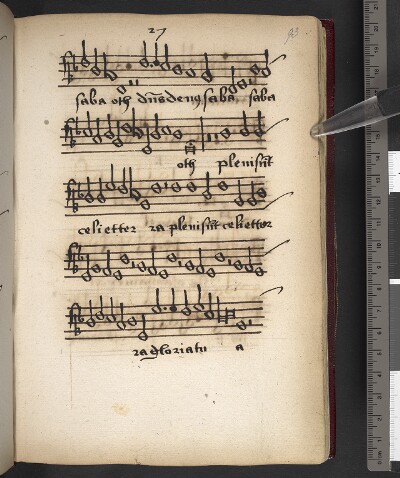 27
93
saba oth dn̄s deus saba saba
oth plenisūt
celi etter ra plenisūt celi etter
ra gloria tu a